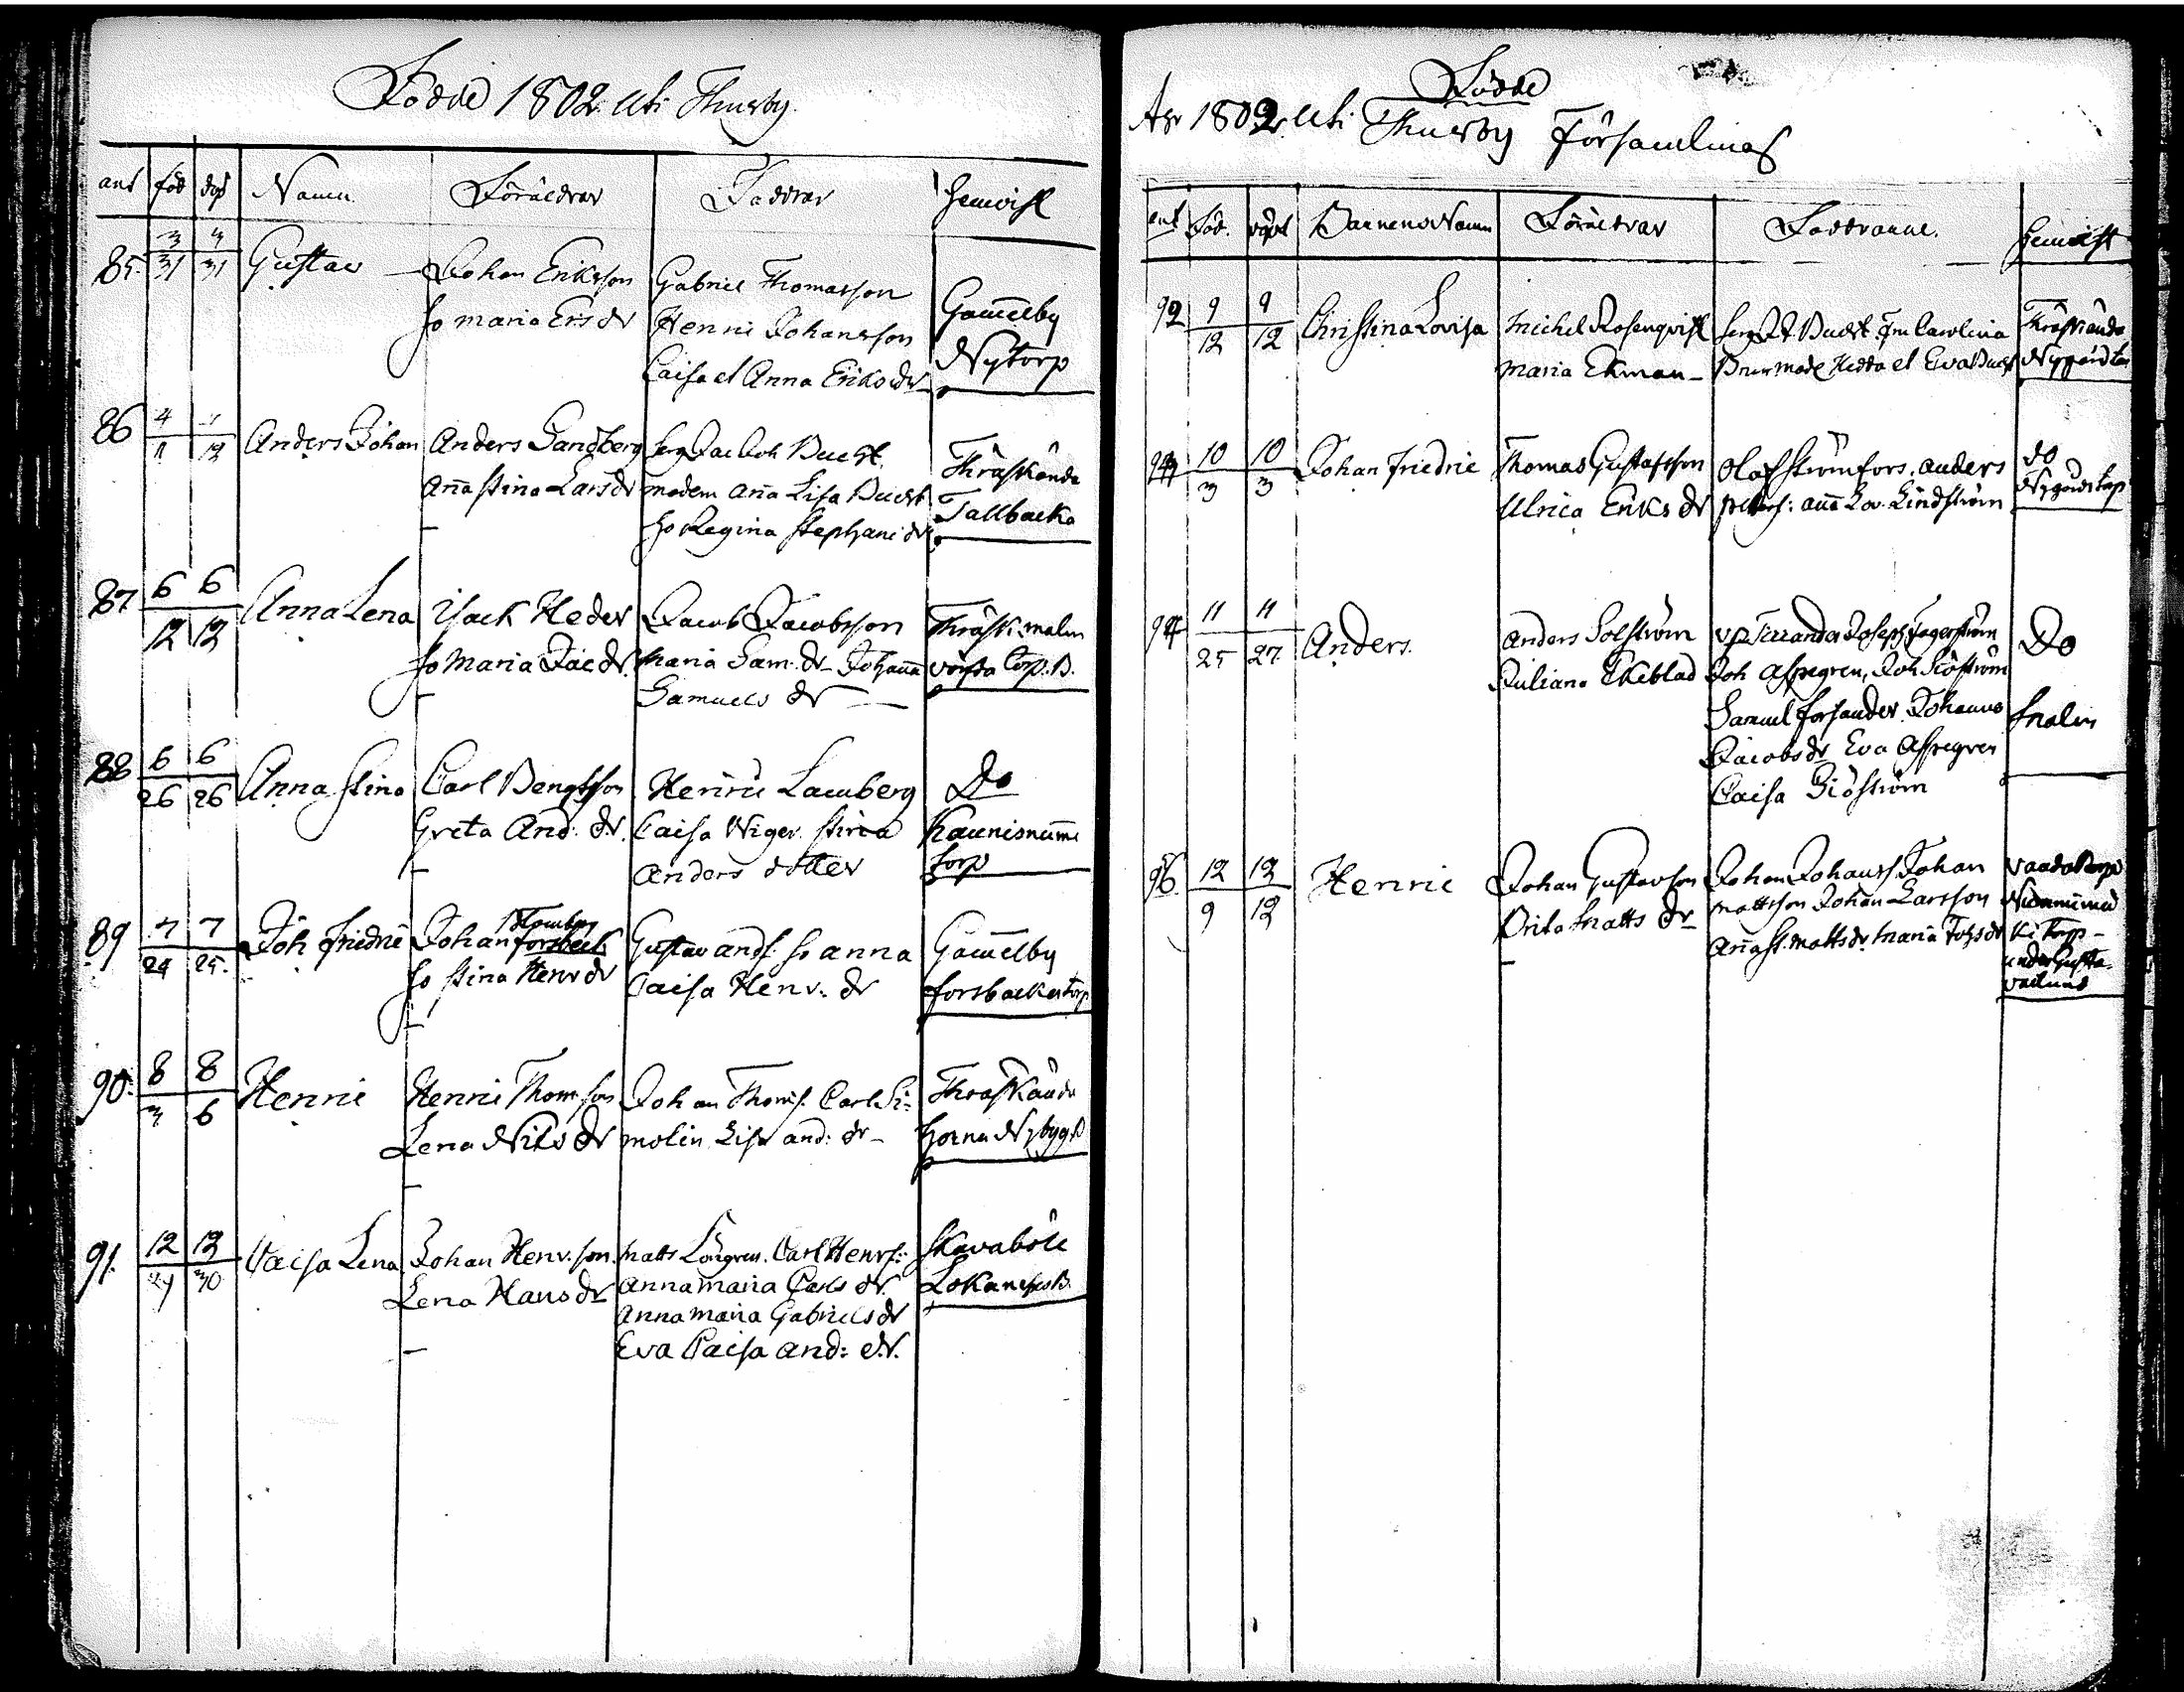 Födde 1802. Uti Thusby.
ant född döpt Namn Föräldrar Faddrar hemvist
85. 3/31 3/31 Gustav Johan Eriksson Gabriel Thomasson Gam̄elby
ho maria Ers dr Henric Johansson Nytorp
Caisa et Anna Eriks dr
86 4/11 12 Anders Johan Anders Sandberg Serg Jac Joh Buckt. Thräskända
Ana Stina Lars dr madem Ana Lisa Buckt Tallbacka
ho Regina Stephani dr
87 6/12 6/12 Anna Lena Isack Heder Jacob Jacobsson Thräsk malm
ho Maria Jac dr. maria Sam: dr Johana torp. B.
Samuels dr
88 6/26 6/26 Anna Stina Carl Bengtsson Henric Lamberg Do
Greta And: dr. Caisa Niger. Stina Kaunisnum̄e
Anders dotter torp
89 7/24 7/25. Joh Friedric Johan forsbeck Gustav ands ho anna Gam̄elby
ho Stina Henr dr Caisa Henr: dr forsbacka torp
90. 8/3 8/6 Henric Henric Thomson Johan Thoms. Carl Si= Thräskända
Lena Nils dr molin Lisa and: dr horna Nybygd
91. 12/29 12/30 Caisa Lena Johan Henr.son matts Löngren. Carl Henrs: Skavaböle
Lena Hans dr Anna maria Carls dr.
Anna maria Gabriels dr
Eva Caisa and: dr.
Födde
År 1802. Uti Thusby Församling
ant föd. döpt Barnens Namn Föräldrar Faddrarne. hemvist
92 9/12 9/12 Christina Lovisa Michel Rosenqvist Serg Buckt Carolina Thräskända
Maria Ekman Hedda et Eva Buckt
10/3 10/3 Johan Friedric Thomas Gustafsson Olof Strömfors. anders do
Ulrica Eriks dr petters: ana Lov. Lindström
94 11/25 11/27 Anders. Anders Solström Joseph Fagerström Do
Juliana Ekeblad Joh Aspegren, Joh Siöström
Samuel forsander. Johanna malm
Jacobs dr Eva Aspegren
Caisa Siöström
12/9 12/12 Henric Johan Gustavson Johan Johanss. Johan
Brita Matts dr mattsson Johan Larsson
Ana St. matts dr maria Johs dr ki torp
under Gusta=